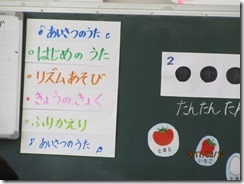 ♪ あいさつのうた ♫
はじめの うた
リズムあそび
きょうの きょく
ふりかえり
♪ あいさつのうた ♬
2
たん たん たん
とまと
いちご